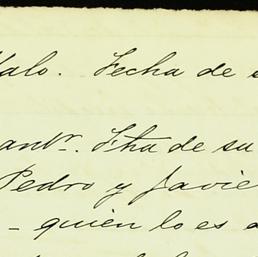 Malo. Fecha de
antr. Fha de su
Pedro y Javie
- quien lo es a